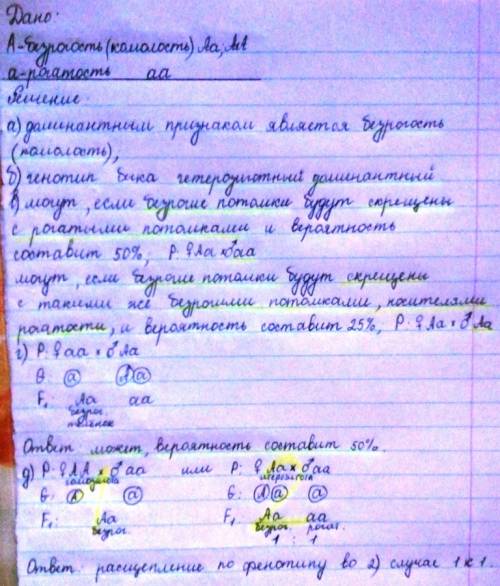 Дано:
А-безрогость (комолость) Аа; АА
а-рогатость аа
Решение.
а) доминантным признаком является безрогость
(комолость),
б) генотип быка гетерозиготный доминантный
в) могут, если безрогие потомки будут скрещены
с рогатыми потомками и вероятность
составит 50%, P: ♀Аа x ♂аа
могут, если безрогие потомки будут скрещены
с такими же безрогими потомками, носителями
рогатости, и вероятность составит 25%, P: ♀Аа x ♂Аа
г) P: ♀ аа x ♂ Аа
G: а А а
F₁ Аа аа
безрог.
теленок
Ответ может, вероятность составит 50%.
д) P: ♀АА x ♂аа или P: ♀Аа x ♂аа
гомозигота гетерозигота
G: А а G: А а а
F₁: Аа F₁ Аа аа
безрог. безрог. рогат.
1 : 1
Ответ: расщепление по фенотипу во 2) случае 1 к 1.